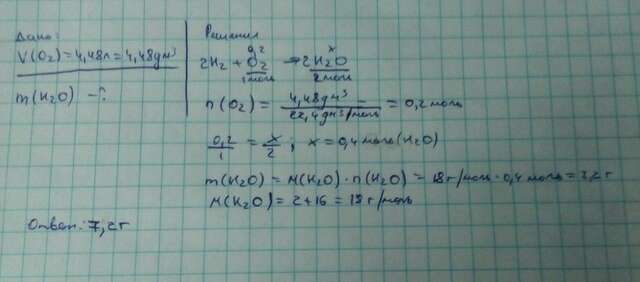 Дано:
V(O₂)=4,48л=4,48дм³
m(H₂O) -?
Решение
0,2 x
2H₂ + O₂ → 2H₂O
1моль 2моль
n(O₂) = 4,48дм³ / 22,4дм³/моль = 0,2 моль
0,2/1 = x/2 ; x=0,4 моль(H₂O)
m(H₂O) = M(H₂O) · n(H₂O) = 18 г/моль · 0,4 моль = 7,2 г
M(H₂O) = 2+16 = 18 г/моль
Ответ: 7,2 г